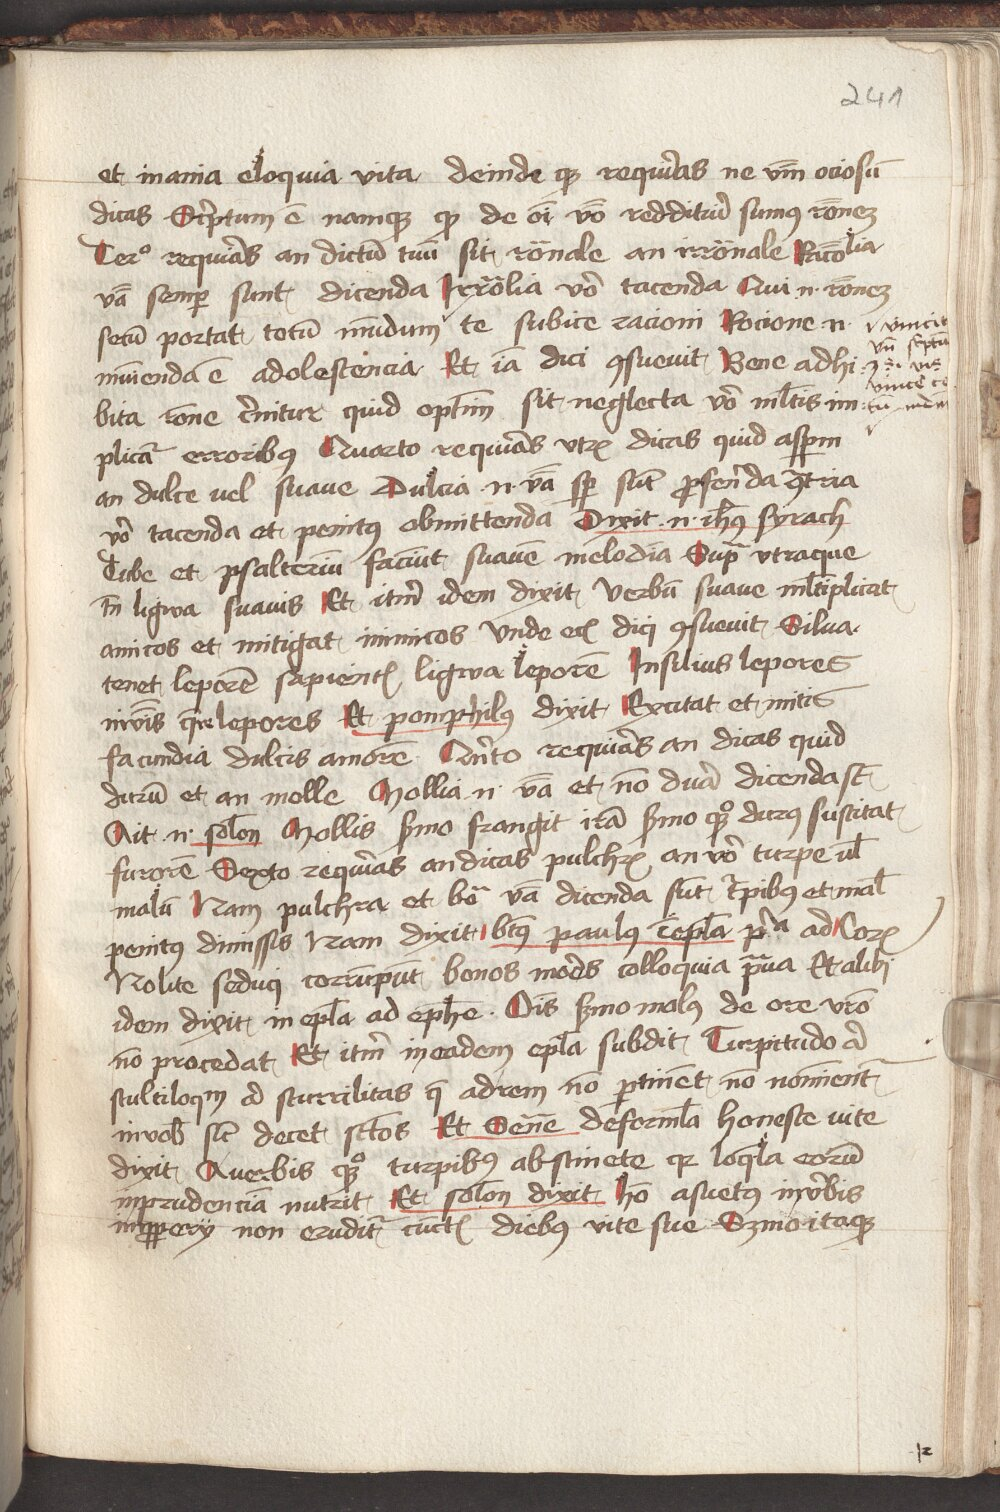 241
et inania eloquia vita deinde qz requiras ne vm̄ ociosū
dicas Scriptum ē namqz qp de oī vō redditurī sumꝰ rōnez
Terº requiras an dictū tuū sit rōnale an irrōnale Racōlia
vā semper sunt dicenda Irrōlia vō tacenda Qui n. rōnez
secū portat totū mūdum te subice racioni Racione n.
vincit
mūienda ē adolescencia Et iā dici ꝯsuevit Bene adhi
bita rōne cernitur quid optīm sit neglecta vō mltis im
plicat̄ erroribꝰ Quarto requiras vtrꝫ dicas quid asperm
an dulce uel suave Dulcia n. vā sp sūt proferēda ꝯtria
vō tacenda et penitꝰ obmittenda Dixit n. ihūs syrach
Tube et psalteriū faciūt suavē melodiā Supra vtraque
lingwa suavis Et itm̄ idem dixit Verbū suave mltiplicat
amicos et mitigat inimicos Vnde ecī dici ꝯsuevit Silua
tenet leporē sapientꝫ ligwa leporē Insilius lepores
inūis qre lepores Et pomphilꝰ dixit Excitat et nitis
facundia dulcis amorē Qnto requiras an dicas quid
durū et an molle Mollia n. vā et nō dura dicenda st
Ait n. solon Mollis sermo frangit irā sermo qp̄ durꝰ suscitat
furorē Sexto requiras an dicas pulchrꝫ an vō turpe ul
malū Nam pulchra et boa vā dicenda sūt turpibꝰ et mal
penitꝰ dimissis Nam dixit btūs paulus ī epla pra ad Corꝫ
Nolite seduci corrūpūt bonos mores colloquia praua Et alibi
idem dixit in epla ad ephe. Oīs sermo malꝰ de ore vrō
nō procedat Et itm̄ in eadem epla subdit Turpitudo ad
stultiloqm ad scurrilitas q̄ ad rem nō ptinet nō noīnent̄
in vob̄ sit decet sctōs Et Senē de formla honeste vite
dixit A verbis qp̄ turpibꝰ abstinete qr loqla eorū
imprudenciā nutrit Et solon dixit hō asuetꝰ in verbis
impperij non erudit̄ cūctꝫ diebꝰ vite sue Sermo itaqz